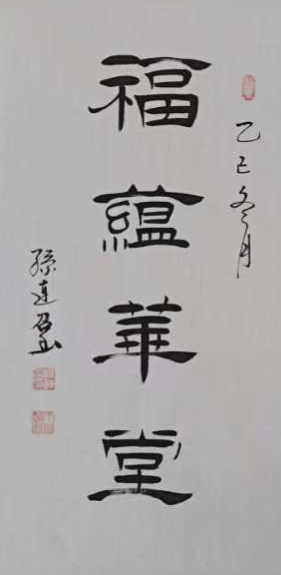 乙巳冬月
福蘊華堂
孫连